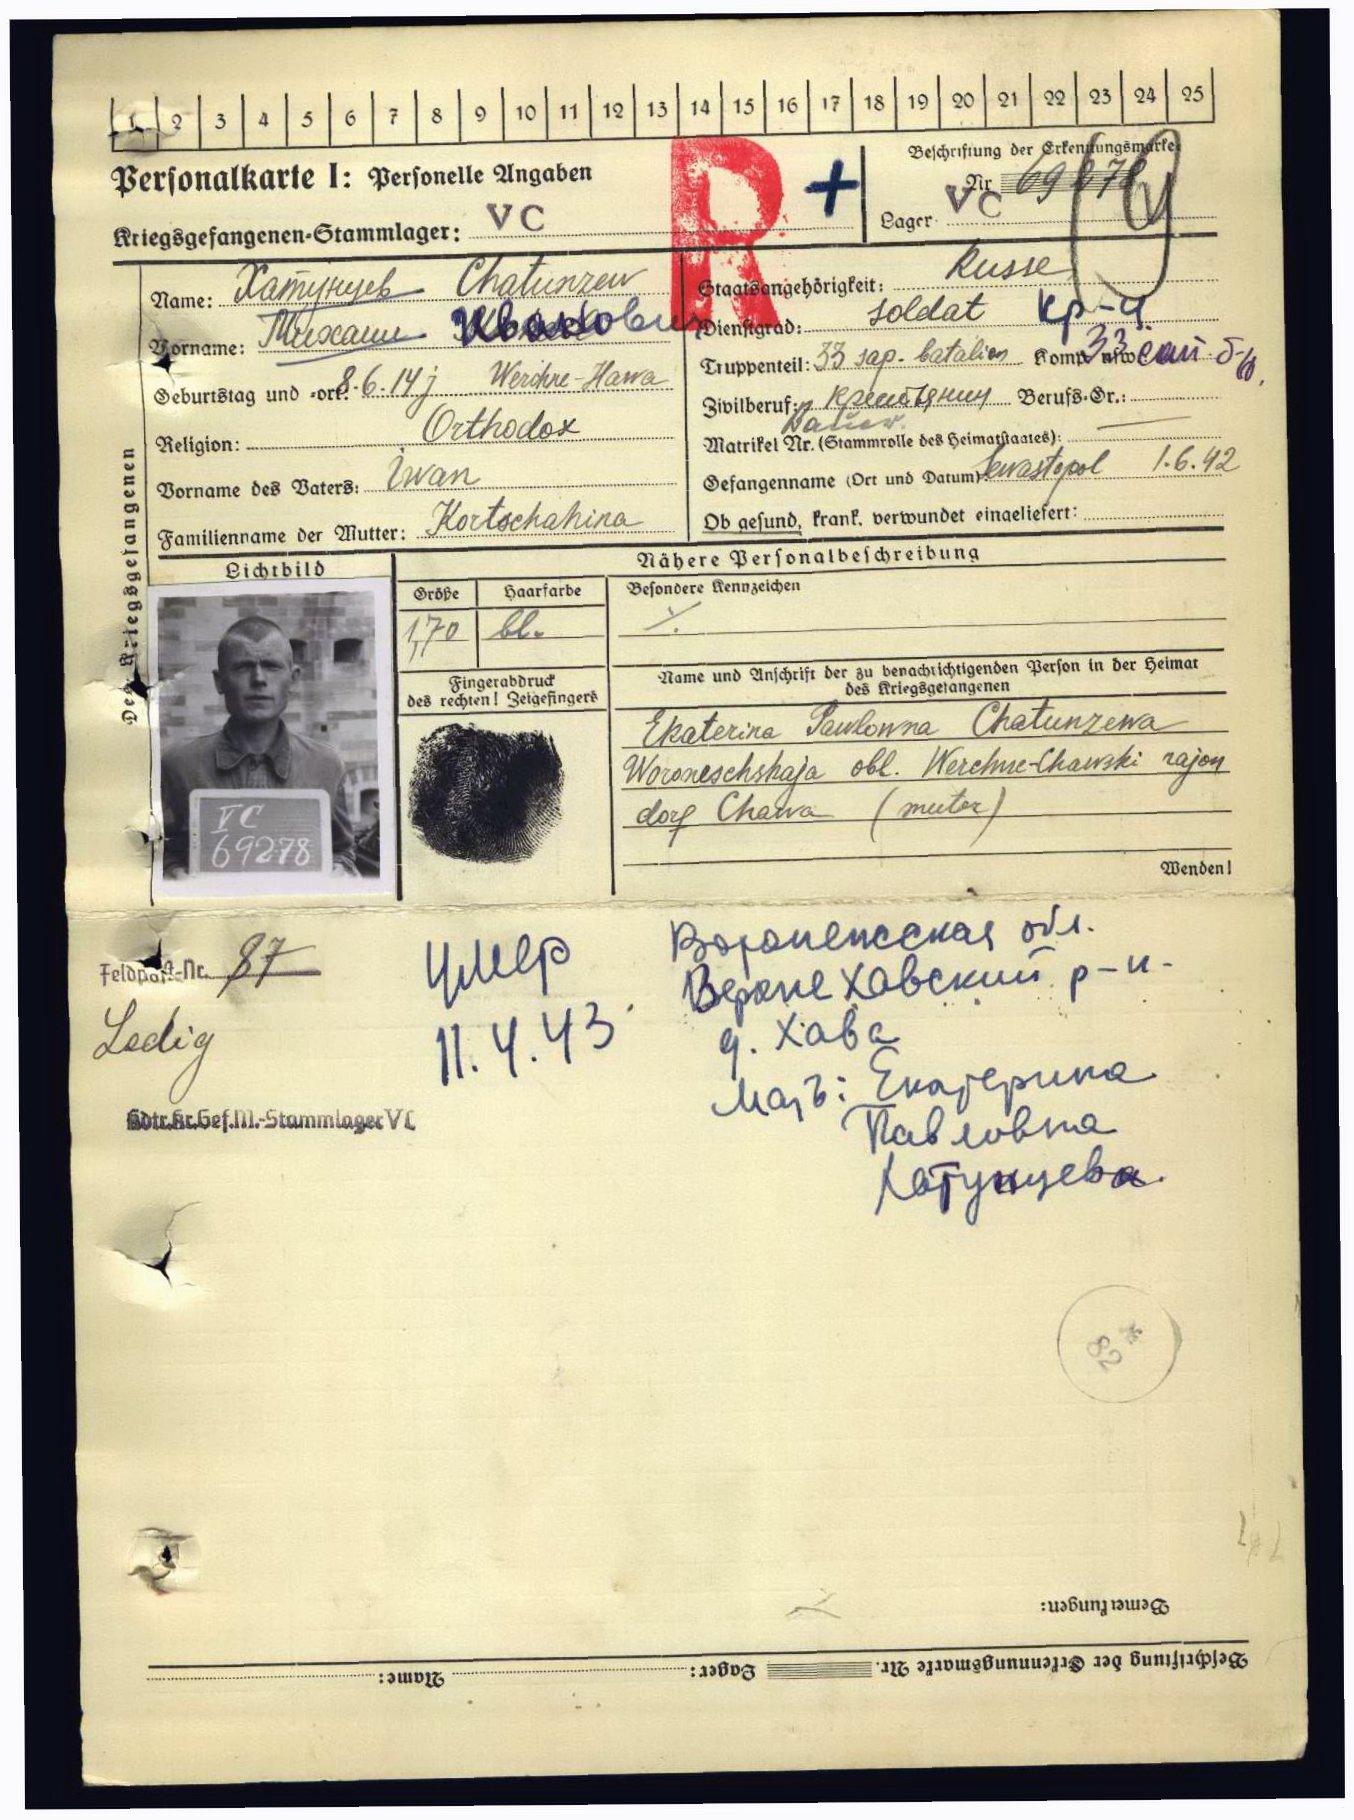 1 2 3 4 5 6 7 8 9 10 11 12 13 14 15 16 17 18 19 20 21 22 23 24 25
Personalkarte I: Personelle Angaben
Kriegsgefangenen-Stammlager: VC
R +
Beschriftung der Erkennungsmarke
Nr.
Lager: VC
Des Kriegsgefangenen
Name: Хатунцев Chatunzew
Vorname: Михаил Иванович
Geburtstag und -ort: 8.6.14j Werchne-Hawa
Religion: Orthodox
Vorname des Vaters: Iwan
Familienname der Mutter: Kortschahina
Staatsangehörigkeit: Russe
Dienstgrad: soldat кр-ц
Truppenteil: 33 sap. batalion Komp. usw.: 33 сап. б-н.
Zivilberuf: крестьянин Berufs-Gr.:
Bauer.
Matrikel Nr. (Stammrolle des Heimatstaates): —
Gefangenname (Ort und Datum): Sewastopol 1.6.42
Ob gesund, krank, verwundet eingeliefert:
Lichtbild
VC
69278
Nähere Personalbeschreibung
Größe Haarfarbe Besondere Kennzeichen
1,70 bl.
Fingerabdruck
des rechten! Zeigefingers
Name und Anschrift der zu benachrichtigenden Person in der Heimat
des Kriegsgefangenen
Ekaterina Pawlowna Chatunzewa
Woroneschskaja obl. Werchne-Chawski rajon
dorf Chawa (muter)
Wenden!
Feldpost-Nr. 87
Ledig
Kdtr.Kr.Gef.M.-Stammlager VC
умер
11.4.43.
Воронежская обл.
Верхне Хавский р-н.
д. Хава
Мать: Екатерина
Павловна
Хатунцева.
* 82
Bemerkungen:
Beschriftung der Erkennungsmarke Nr. Lager: Name: